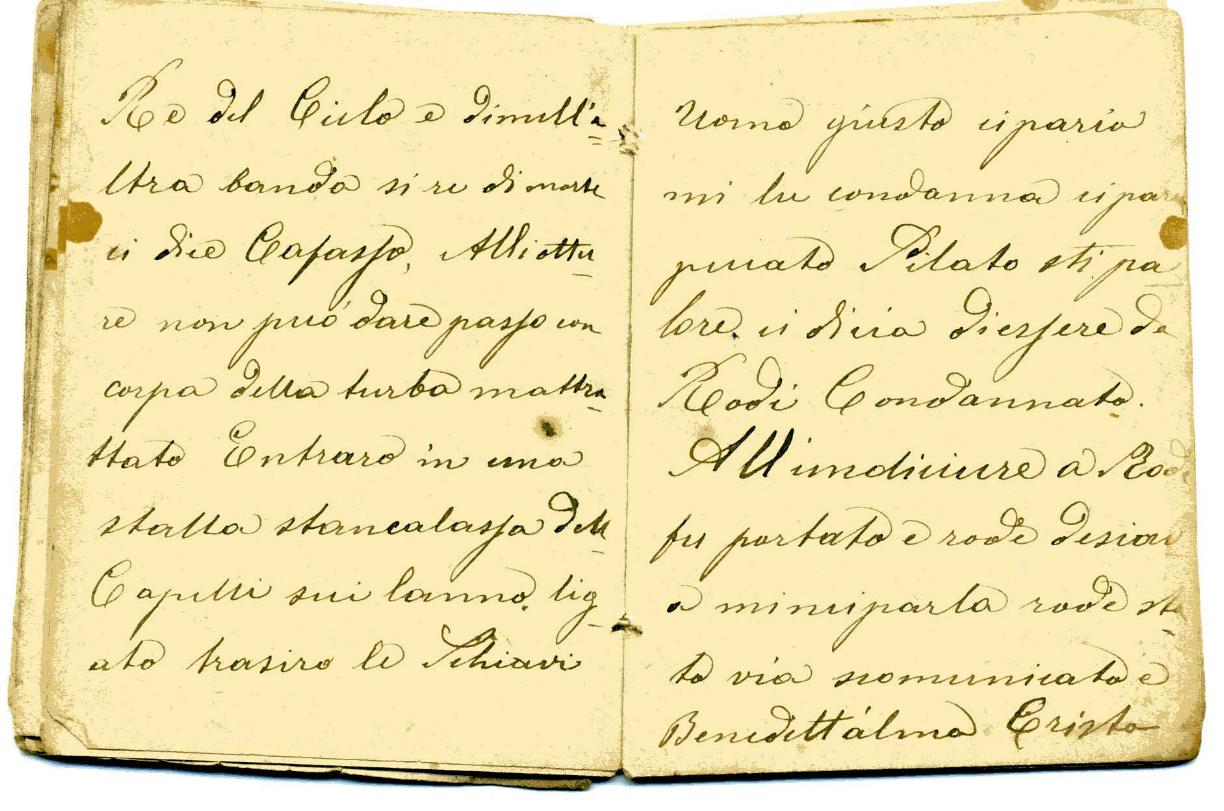 Re del Cielo e dimill'a
ltra banda si re di morte
ci dice Cafasso, Alliottu
re non può dare passo con
corpa della turba mattra
ttato Entraro in una
stalla stancalassa delli
Capelli sui lanno lig
ato trasiro le Schiavi
Uomo giusto ci pario
mi lu condanna ci par
pucato Pilato sti pa
lore. ci dicia di essere da
Rodi Condannato.
All'imdiciure a Rode
fu portato e rode desiau
a miniparla rode sta
to via scomunicato e
Benedett'alma Cristo